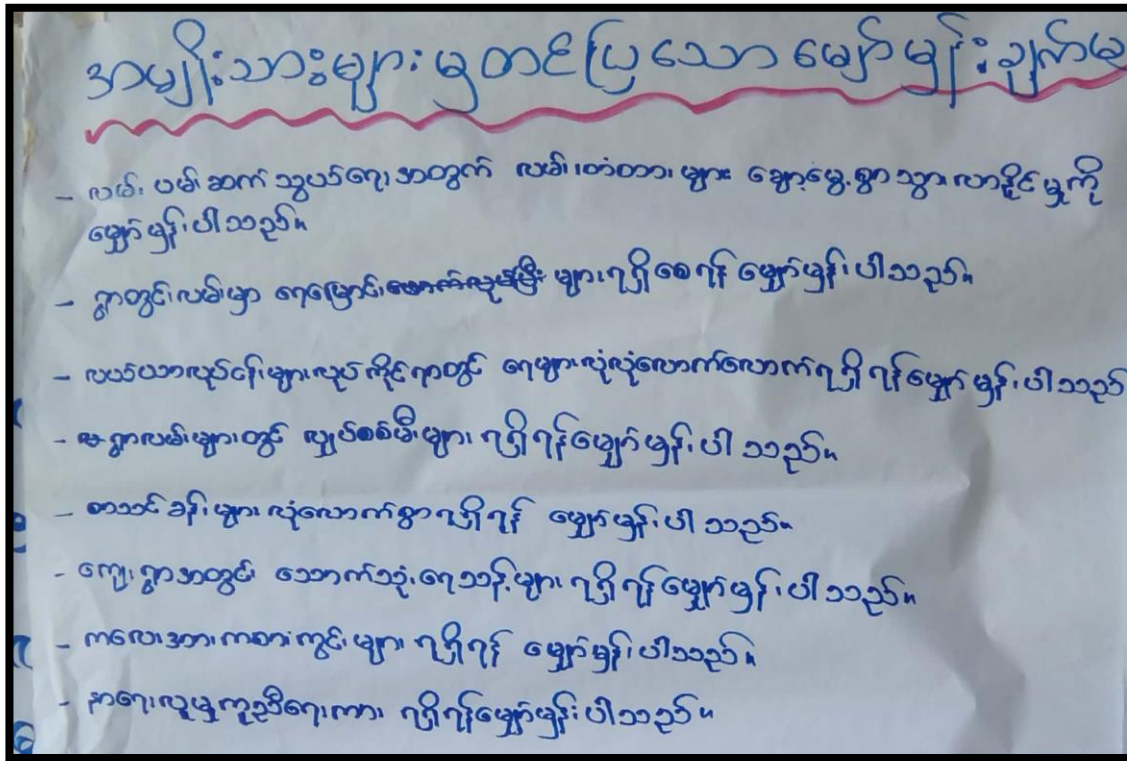 အမျိုးသားများမှတင်ပြသော မျှော်မှန်းချက်
- လမ်းပမ်းဆက်သွယ်ရေးအတွက် လမ်းတံတားများ ချောမွေ့စွာသွားလာနိုင်မှုကို
မျှော်မှန်းပါသည်။
- ရွာတွင်းလမ်းမှာ ရေမြောင်း များရရှိစေရန် မျှော်မှန်းပါသည်။
- လယ်ယာလုပ်ငန်းများလုပ်ကိုင်ရာတွင် ရေများလုံလုံလောက်လောက်ရရှိရန်မျှော်မှန်းပါသည်
- ရွာလမ်းများတွင် လျှပ်စစ်မီးများ ရရှိရန်မျှော်မှန်းပါသည်။
- စာသင်ခန်းများ လုံလောက်စွာရရှိရန် မျှော်မှန်းပါသည်။
- ကျေးရွာအတွင်း သောက်သုံးရေသန့်များ ရရှိရန်မျှော်မှန်းပါသည်။
- ကလေးအားကစားကွင်းများ ရရှိရန် မျှော်မှန်းပါသည်။
- နာရေးလူမှုကူညီရေးကား ရရှိရန်မျှော်မှန်းပါသည်။